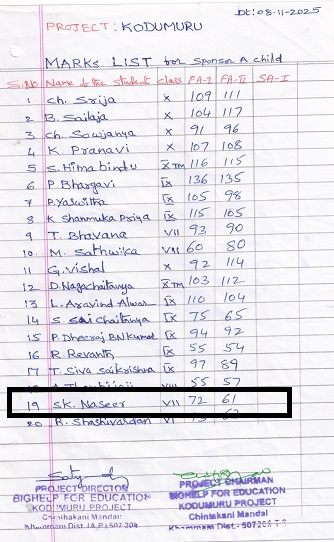 Dt: 08-11-2025
PROJECT: KODUMURU
MARKS LIST for Sponsor A child
S.No Name of the student class FA-I FA-II SA-I
1 Ch. Srija X 109 111
2 B. Sailaja X 104 117
3 Ch. Soujanya X 91 96
4 K. Pranavi X 107 108
5 S. Himabindu X TM 116 115
6 P. Bhargavi IX 136 135
7 P. Yaswitha IX 105 98
8 K Shanmuka Priya IX 115 105
9 T. Bhavana VII 93 90
10 M. Sathwika VII 60 80
11 G. Vishal X 92 114
12 D. Nagachaitanya X TM 103 112
13 L. Aravind Alwar IX 110 104
14 S. Sai chaitanya IX 75 65
15 P. Dheeraj B.N. kumar IX 94 92
16 R. Revanth IX 55 54
17 T. Siva saikrishna IX 97 89
55 57
19 SK. Naseer VII 72 61
20 R. Shashivardan VI
PROJECT DIRECTOR
BIGHELP FOR EDUCATION
KODUMURU PROJECT
Chinthakani Mandal
Khammam Dist (A.P) 507 208
PROJECT CHAIRMAN
BIGHELP FOR EDUCATION
KODUMURU PROJECT
Chintakani Mandal
Khammam Dist - 507208